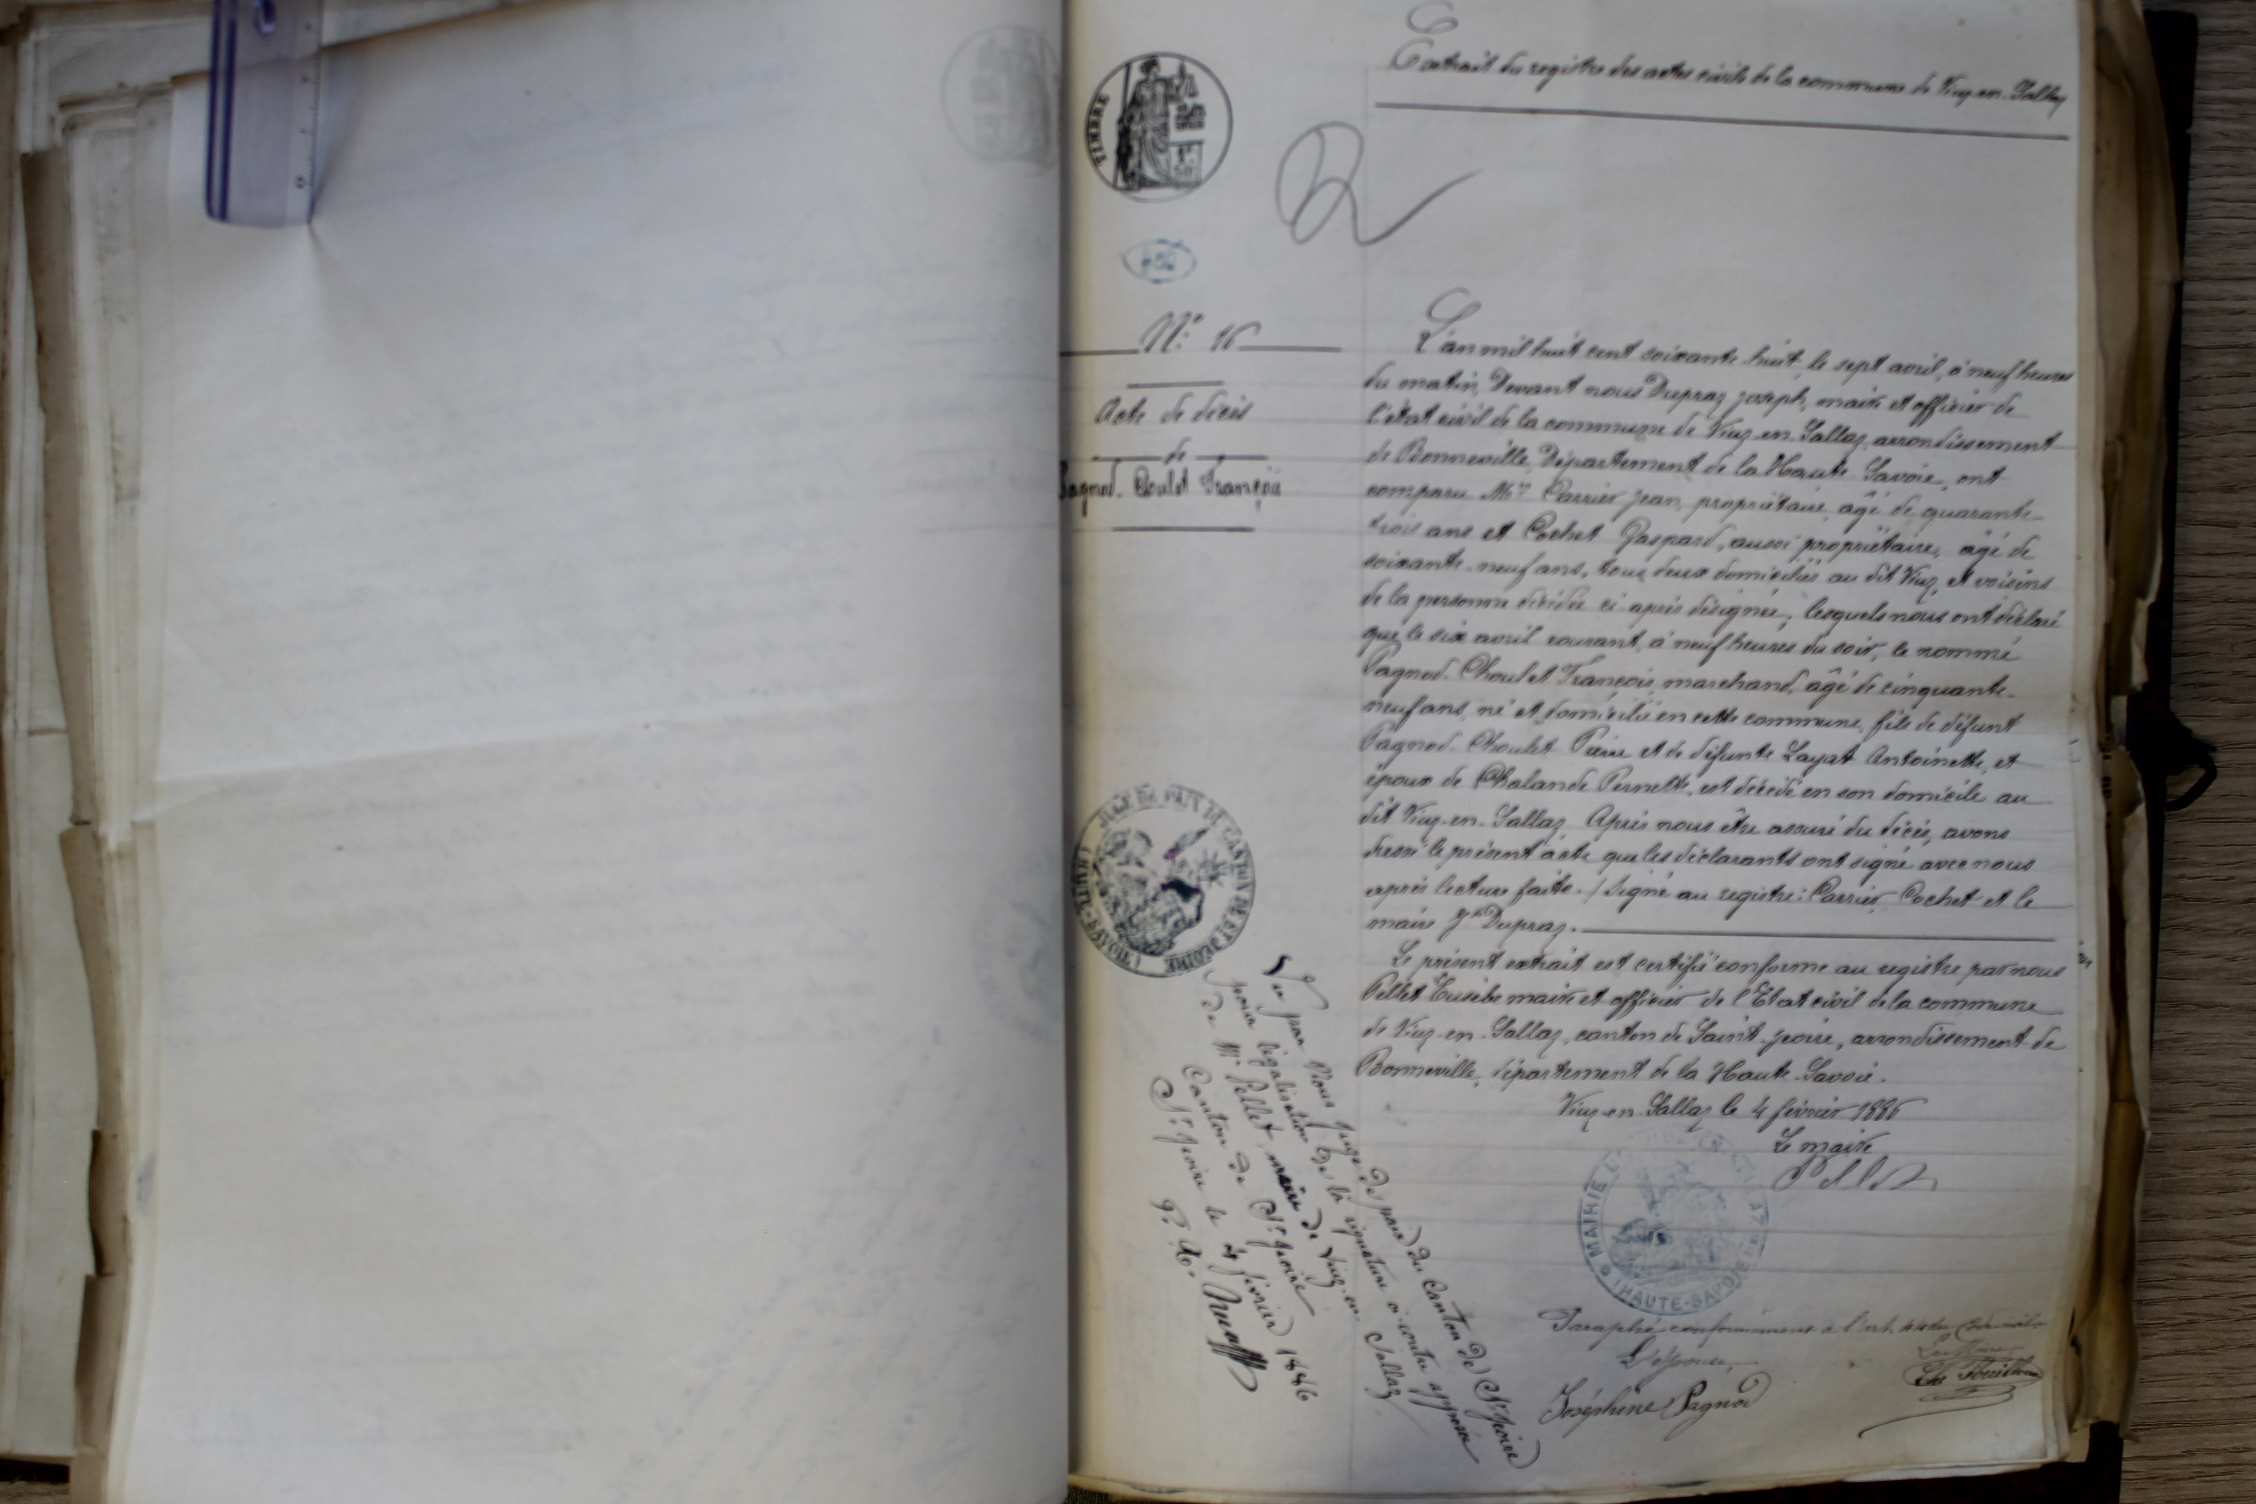 Extrait du registre des actes civils de la commune de Viuz-en-Sallaz
TIMBRE
N° 16
Acte de décès
de
Pagnod-Choulet François
L'an mil huit cent soixante-huit, le sept avril, à neuf heures
du matin, Devant nous Dupraz Joseph, maire et officier de
l'état civil de la commune de Viuz-en-Sallaz, arrondissement
de Bonneville, Département de la Haute-Savoie, ont
comparu Mrs Carrier Jean, propriétaire, âgé de quarante-
trois ans et Cochet Gaspard, aussi propriétaire, âgé de
soixante-neuf ans, tous deux domiciliés au dit Viuz, et voisins
de la personne décédée ci-après désignée, lesquels nous ont déclaré
que le six avril courant, à neuf heures du soir, le nommé
Pagnod-Choulet François, marchand, âgé de cinquante-
neuf ans, né et domicilié en cette commune, fils de défunt
Pagnod-Choulet Pierre et de défunte Layat Antoinette, et
époux de Chalande Pernette, est décédé en son domicile au
dit Viuz-en-Sallaz. Après nous être assuré du décès, avons
dressé le présent acte que les déclarants ont signé avec nous
après lecture faite. / Signé au registre: Carrier, Cochet et le
maire Jh Dupraz.
Le présent extrait est certifié conforme au registre par nous
Pellet Eusèbe maire et officier de l'Etat civil de la commune
de Viuz-en-Sallaz, canton de Saint-Jeoire, arrondissement de
Bonneville, département de la Haute-Savoie.
Viuz-en-Sallaz le 4 février 1886
Le maire
Pellet
MAIRIE
(HAUTE-SAVOIE)
JUGE DE PAIX DU CANTON DE ST JEOIRE
(HAUTE-SAVOIE)
Vu par Nous Juge de paix du Canton de St Jeoire
pour légalisation de la signature ci-contre apposée
de Mr Pellet maire de Viuz-en-Sallaz
Canton de St Jeoire
St Jeoire le 4 février 1886
Paraphé conformément à l'art. 44 du Code civil
L'épouse,
Joséphine Pagnod